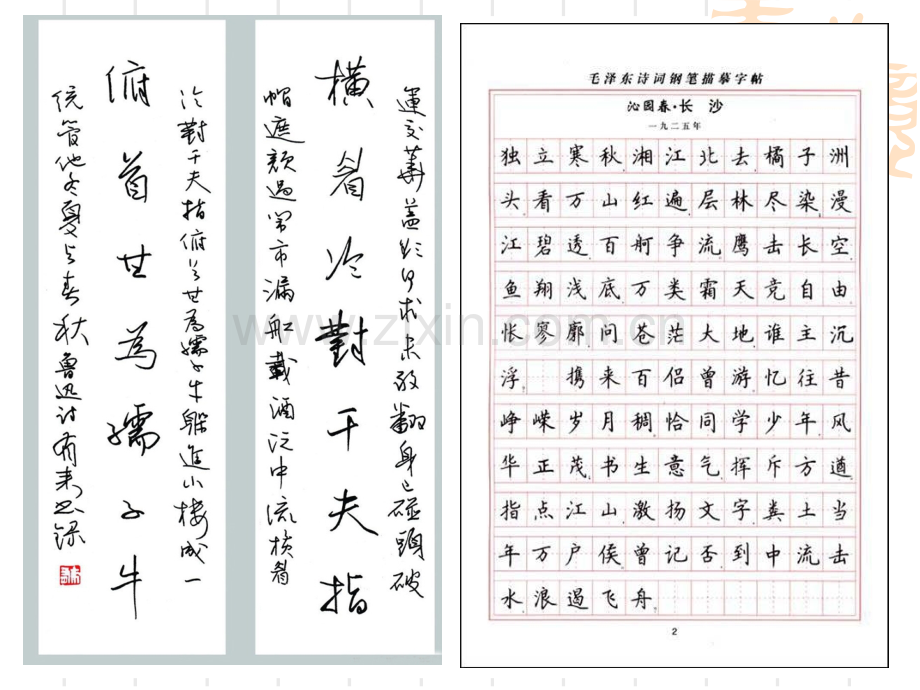 運交華蓋欲何求未敢翻身已碰頭破
橫眉冷對千夫指
帽遮顏過鬧市漏舡載酒泛中流橫眉
冷對千夫指俯首甘為孺子牛躲進小樓成一
俯首甘為孺子牛
統管他冬夏与春秋 魯迅詩
毛泽东诗词钢笔描摹字帖
沁园春·长沙
一九二五年
独立寒秋湘江北去橘子洲
头看万山红遍层林尽染漫
江碧透百舸争流鹰击长空
鱼翔浅底万类霜天竞自由
怅寥廓问苍茫大地谁主沉
浮 携来百侣曾游忆往昔
峥嵘岁月稠恰同学少年风
华正茂书生意气挥斥方遒
指点江山激扬文字粪土当
年万户侯曾记否到中流击
水浪遏飞舟
2
www.zixin.com.cn